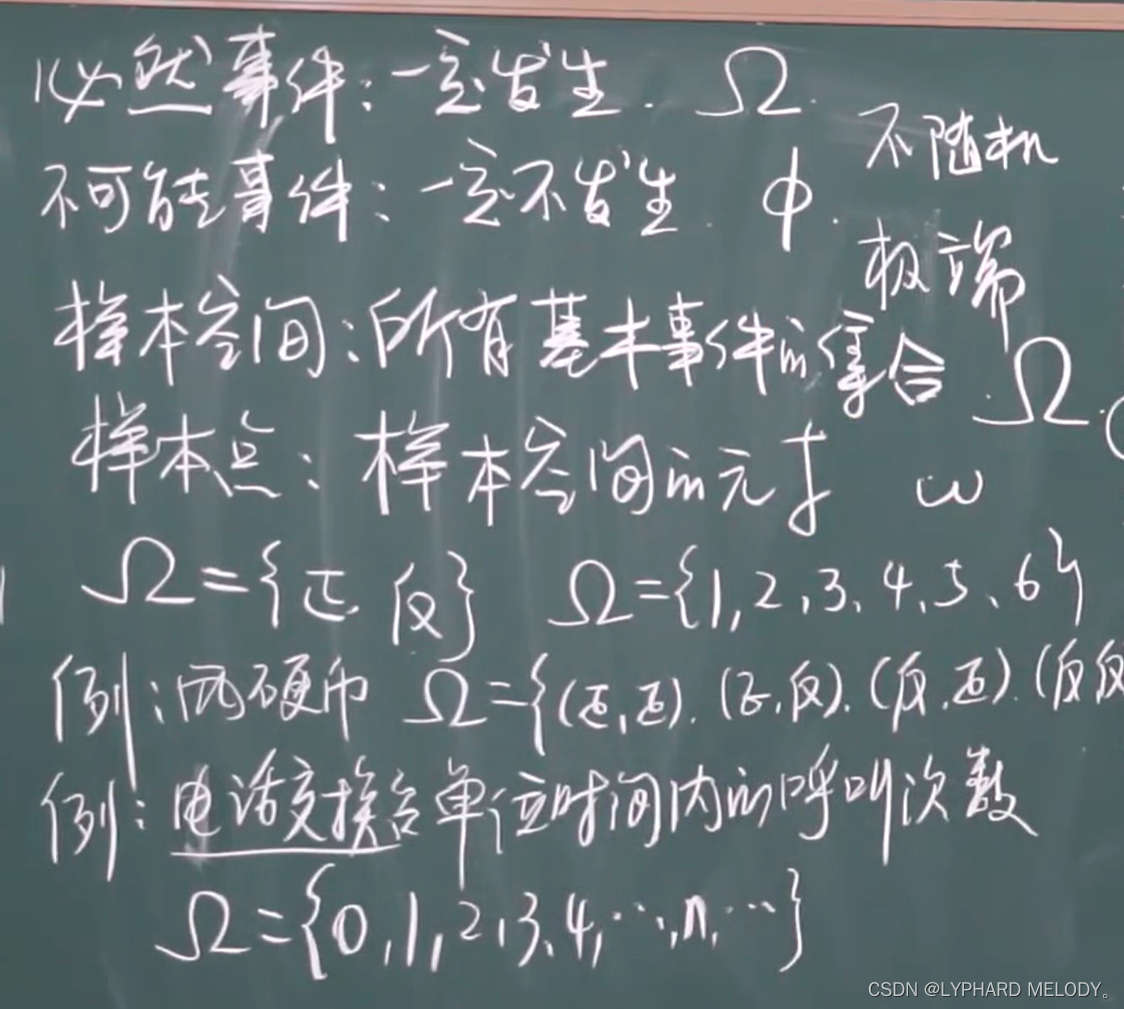 必然事件：一定发生. Ω.
不可能事件：一定不发生. φ.
不随机
极端
样本空间：所有基本事件的集合 Ω.
样本点：样本空间的元素 ω
Ω={正 反} Ω={1,2,3、4,5、6}
例：两硬币 Ω={(正,正).(正,反).(反,正).(反反
例：电话交换台单位时间内的呼叫次数
Ω={0,1,2,3、4,…,n,…}
CSDN @LYPHARD MELODY。